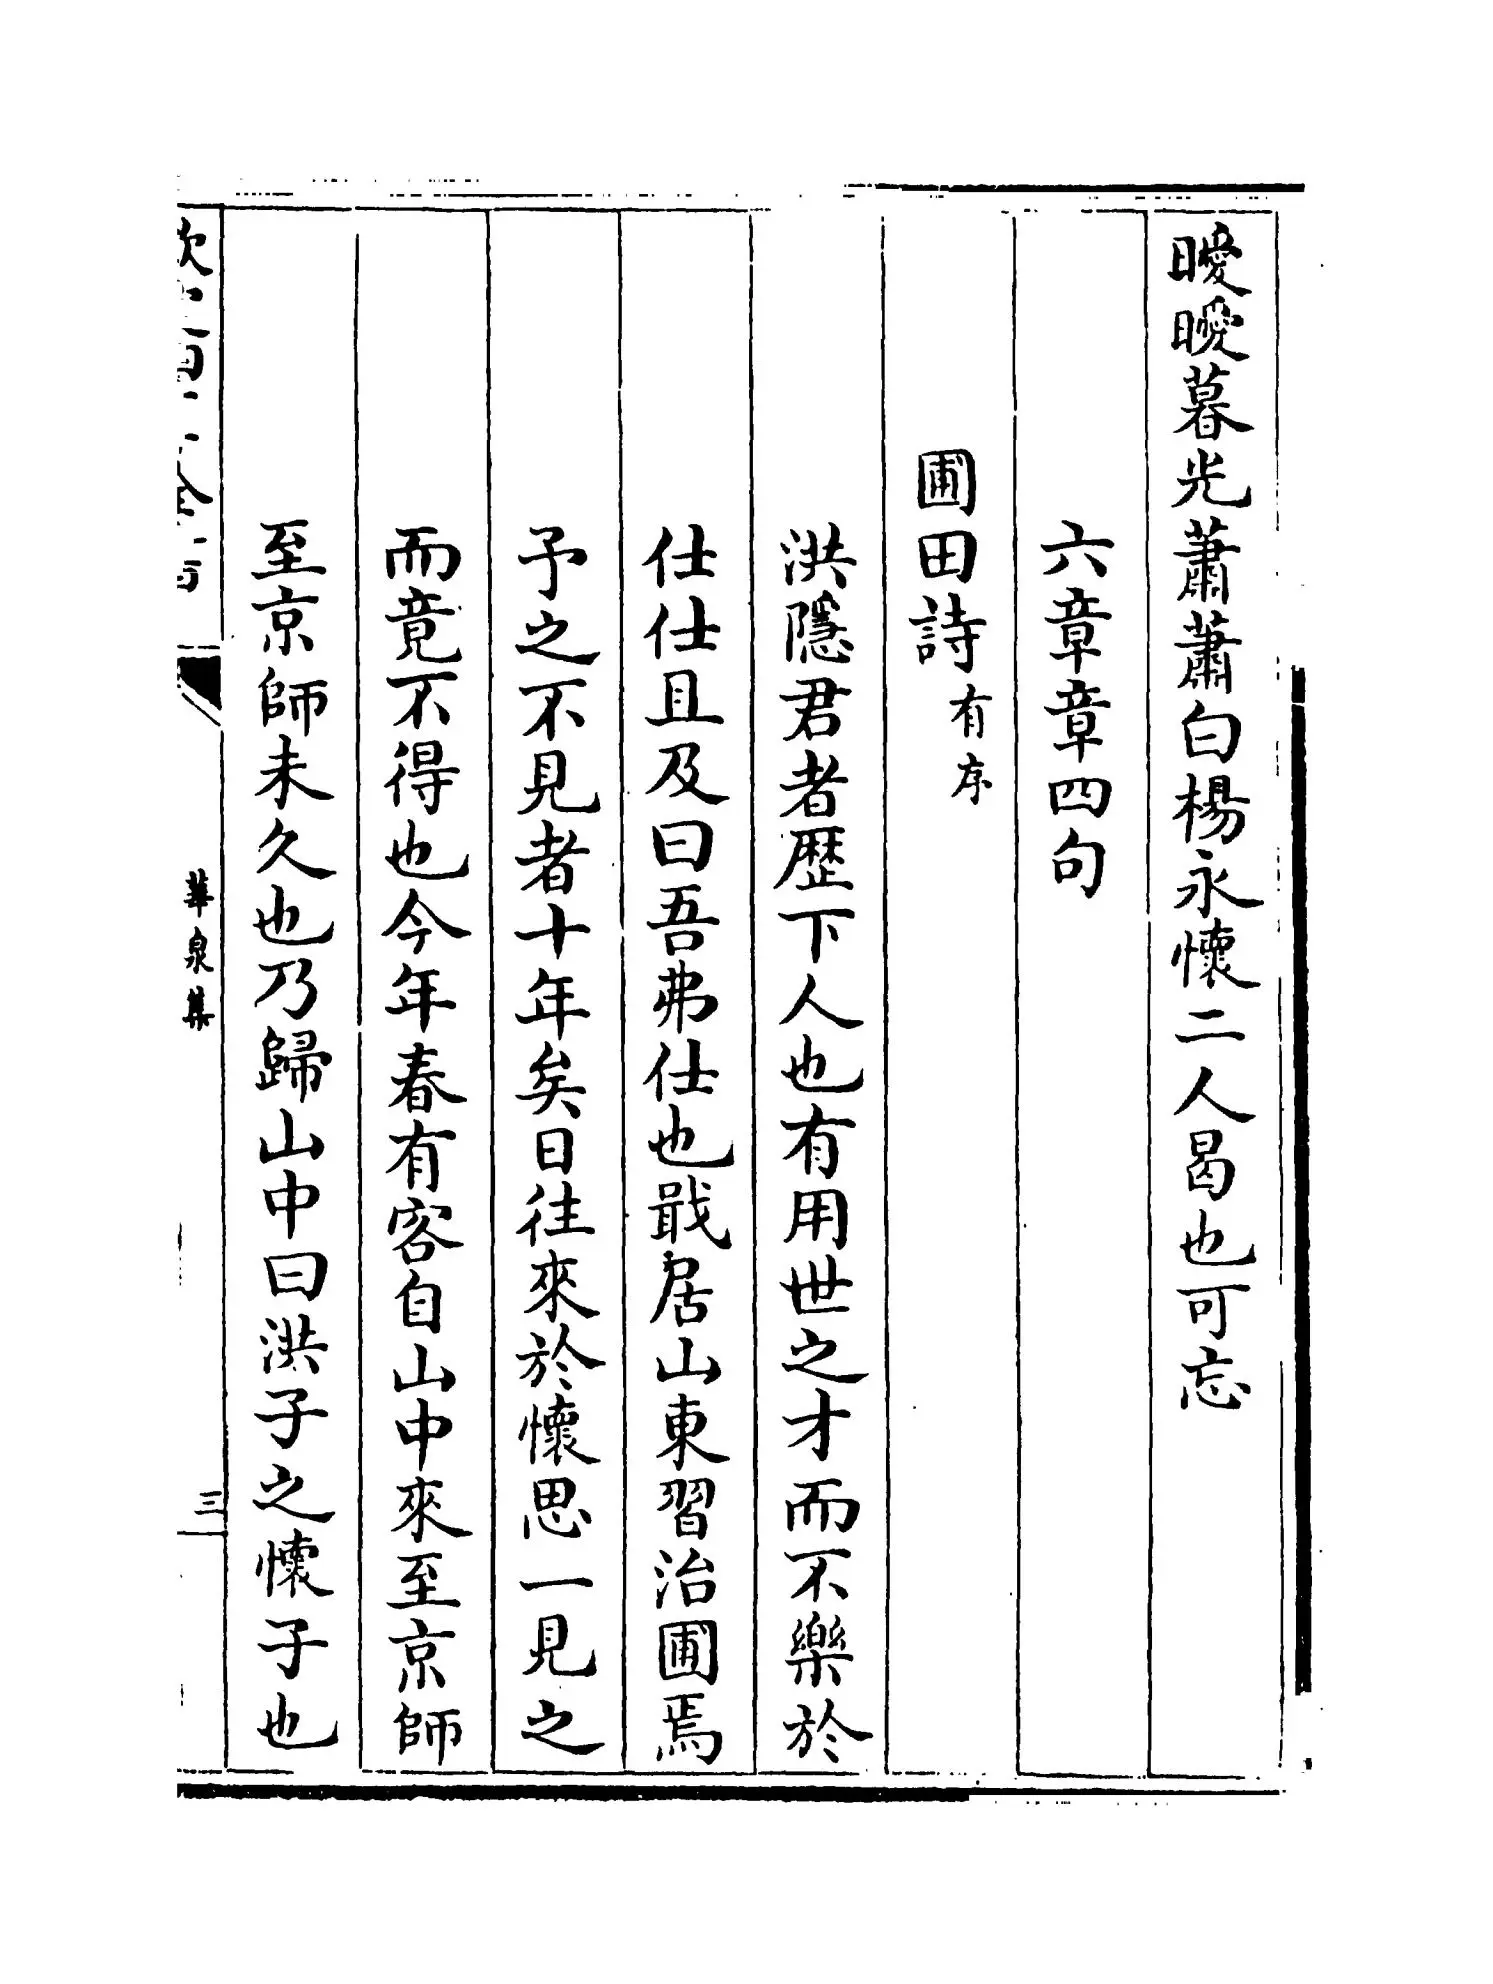 曖曖暮光蕭蕭白楊永懷二人曷也可忘
六章章四句
圃田詩有序
洪隱君者歴下人也有用世之才而不樂於
仕仕且及曰吾弗仕也戢居山東習治圃焉
予之不見者十年矣日往來於懷思一見之
而竟不得也今年春有客自山中來至京師
至京師未久也乃歸山中曰洪子之懷子也
華泉集
三